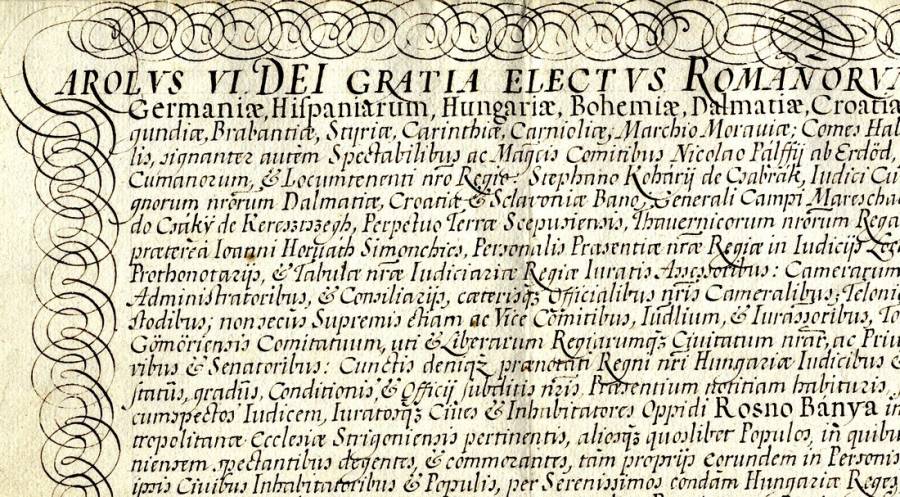 CAROLVS VI. DEI GRATIA ELECTVS ROMANORV
Germaniæ, Hispaniarum, Hungariæ, Bohemiæ, Dalmatiæ, Croatiæ
gundiæ, Brabantiæ, Styriæ, Carinthiæ, Carnioliæ, Marchio Moraviæ; Comes Hab
lis, signanter autem Spectabilibus ac Magcis Comitibus Nicolao Pálffij ab Erdőd,
Cumanorum, & Locumtenenti nr̃o Regio: Stephano Koharij de Csabrák, Iudici Cu
gnorum nrõrum Dalmatiæ, Croatiæ & Sclavoniæ Bano, Generali Campi Mareschal
do Csáky de Keressszegh, Perpetuo Terræ Scepusiensis, Thavernicorum nrõrum Rega
præterea Ioanni Horuath Simonchics, Personalis Præsentiæ nr̃æ Regiæ in Iudicijs Leg
Prothonotarijs, & Tabulæ nr̃æ Iudiciariæ Regiæ Iuratis Assessoribus: Camerarum
Administratoribus, & Consiliarijs, cæterisq́ꝫ Officialibus nr̃is Cameralibus; Teloni
stodibus; non secus Supremis etiam ac Vice Comitibus, Iudlium, & Iurassoribus, To
Gömöriensis Comitatuum, uti & Liberarum Regiarumq́ꝫ Civitatum nrar̃, ac Priu
ribus & Senatoribus: Cunctis deniq́ꝫ prænotati Regni nr̃i Hungariæ Iudicibus &
status, gradus, Conditionis, & Officij subditis nr̃is, Præsentium notitiam habituris,
cumspectos Iudicem, Iuratosq́ꝫ Ciues & Inhabitatores Oppidi Rosno Bánya in
tropolitanæ Ecclesiæ Strigoniensis pertinentis, aliosq́ꝫ quoslibet Populos, in quibu
niensem spectantibus degentes, & commorantes, tam proprijs eorundem in Personis
ipsis Civibus Inhabitatoribus & Populis, per Serenissimos condam Hungariæ Reges